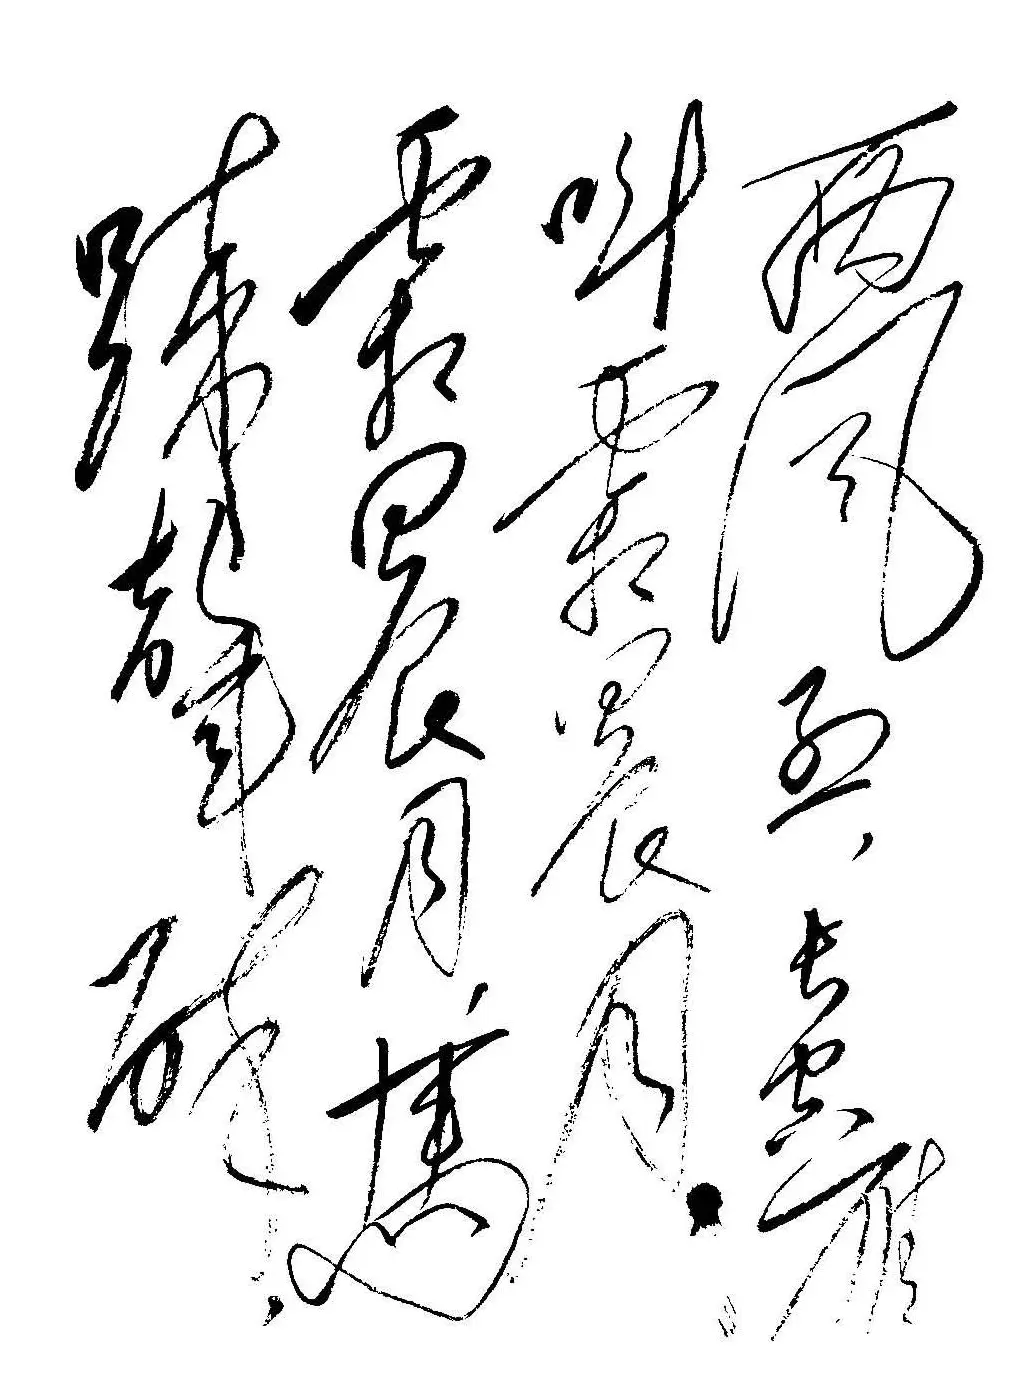 西风烈,长空雁
叫霜晨月。
霜晨月,馬
蹄聲碎,